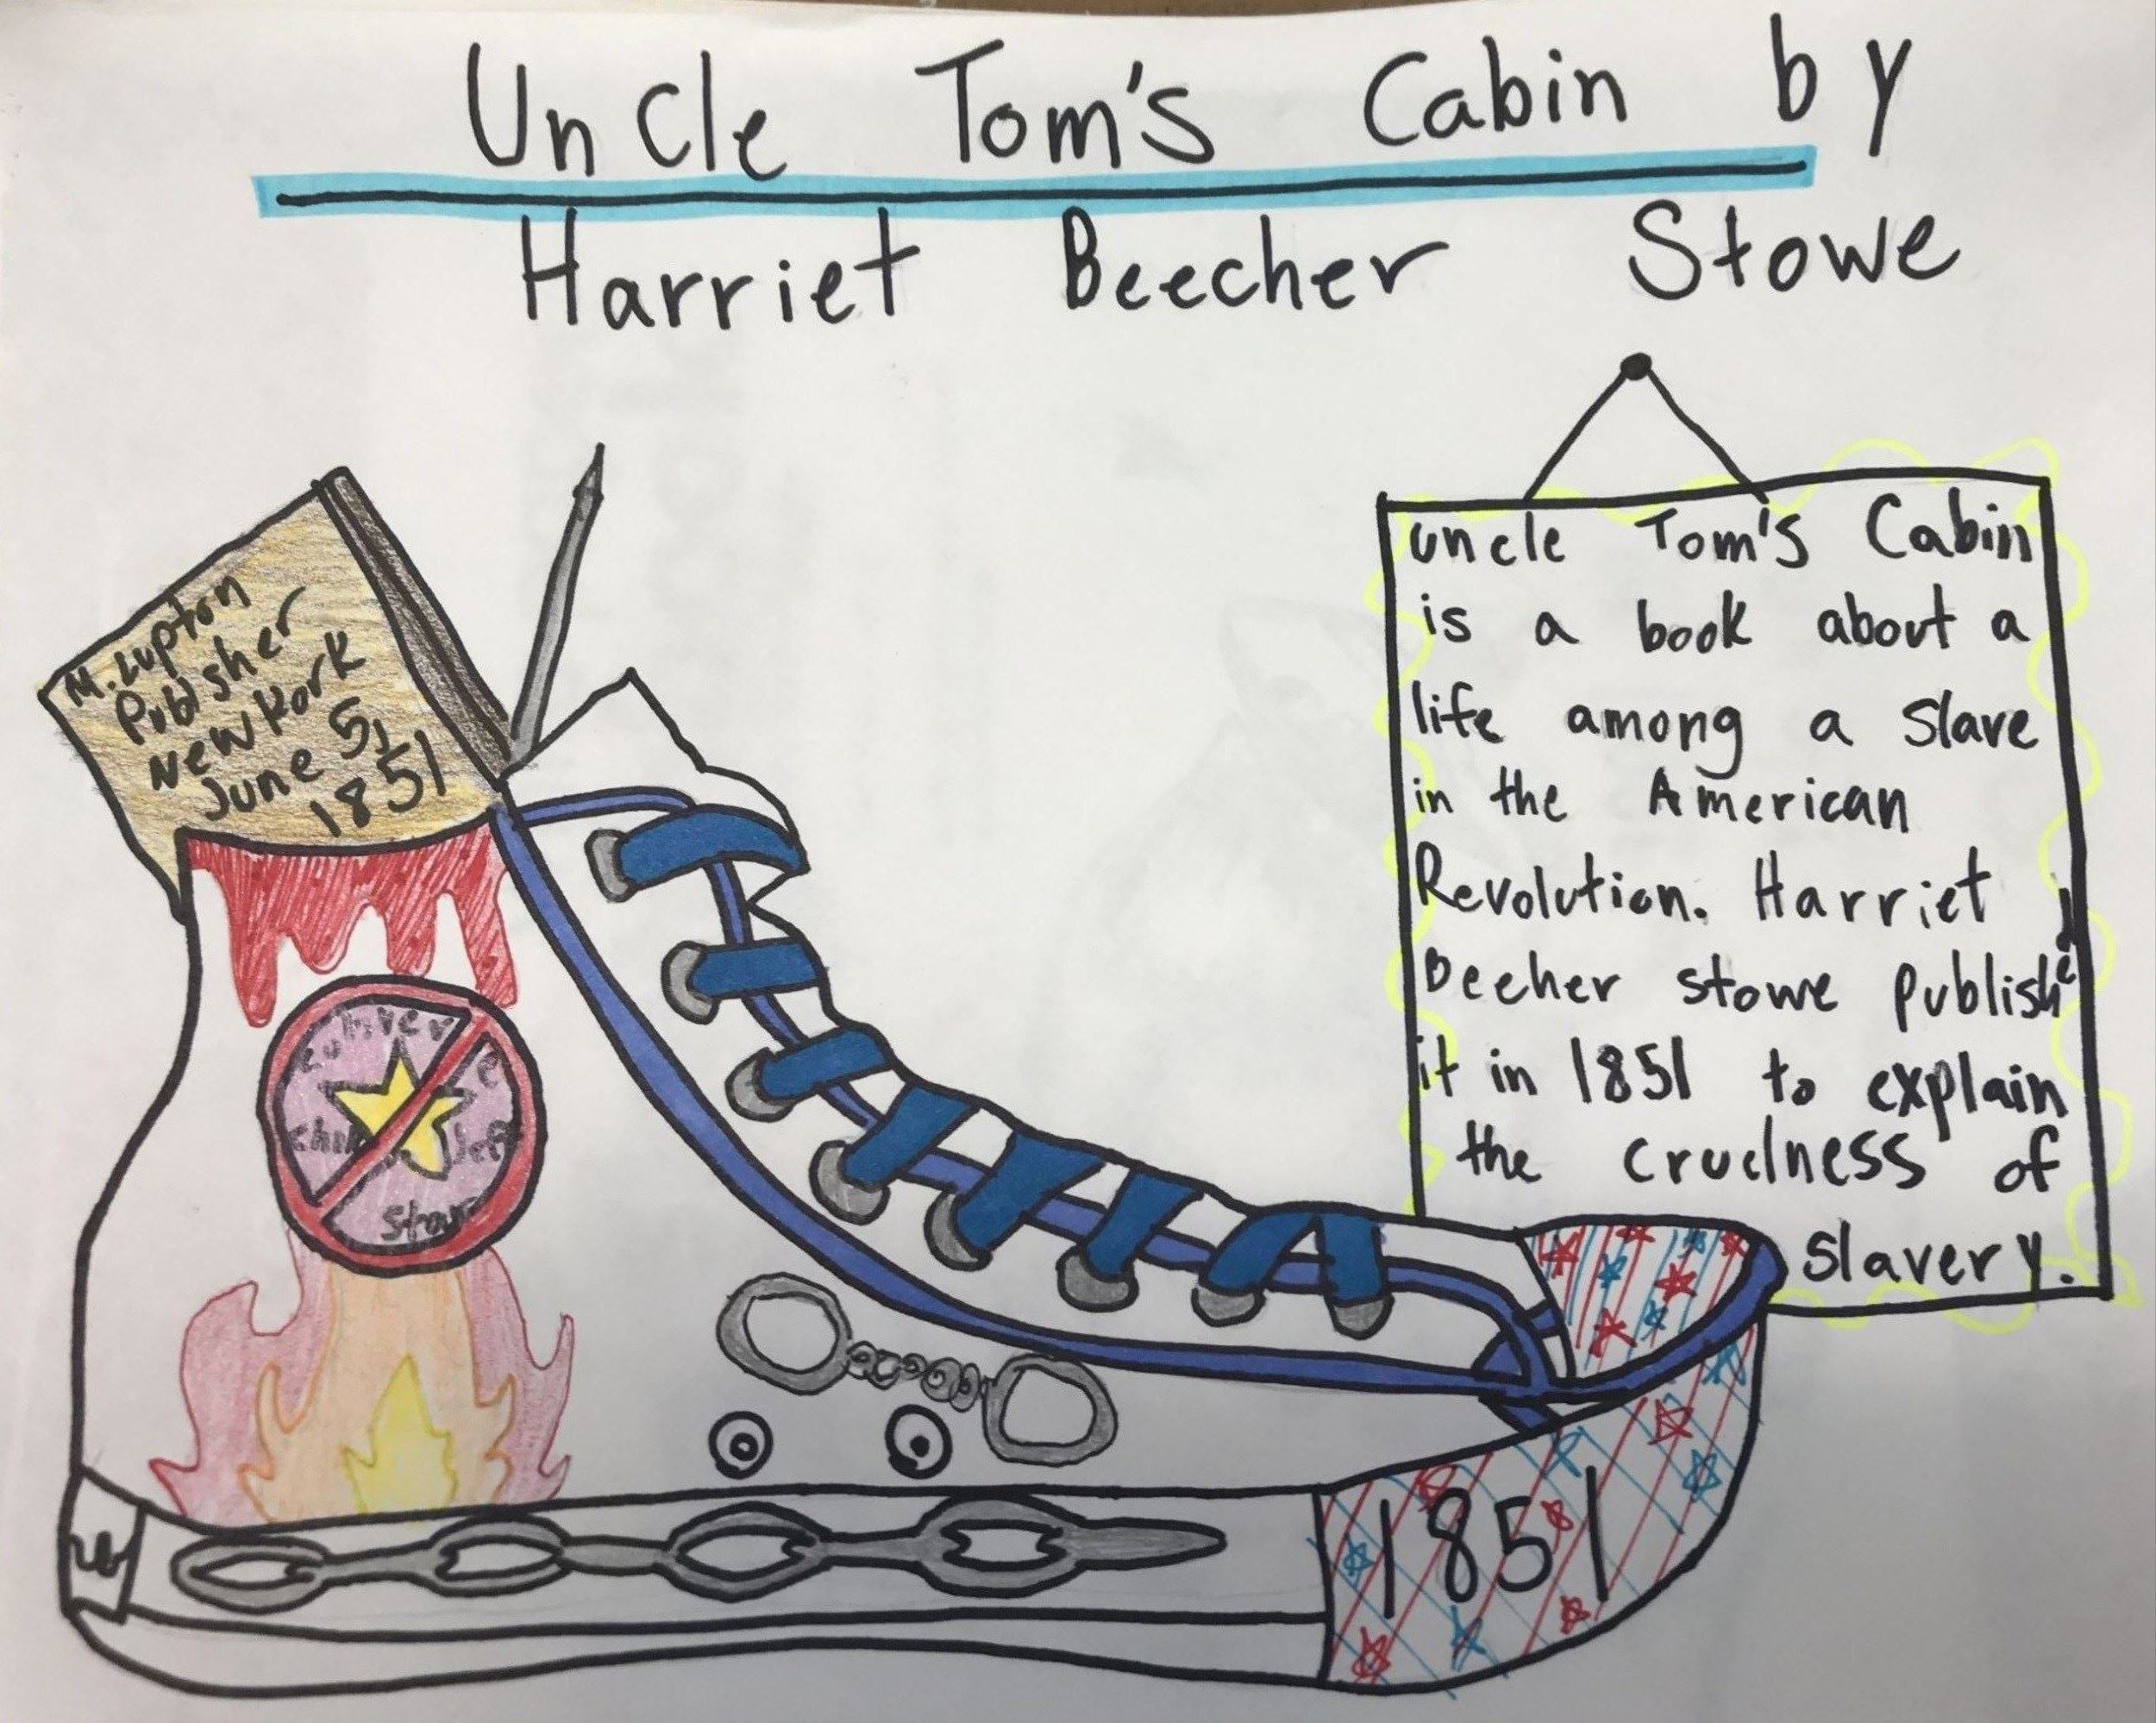 Uncle Tom's Cabin by
Harriet Beecher Stowe
M. Lupton
Publisher
New York
June 5,
1851
uncle Tom's Cabin
is a book about a
life among a slave
in the American
Revolution. Harriet
Beecher stowe published
it in 1851 to explain
the cruelness of
slavery.
1851